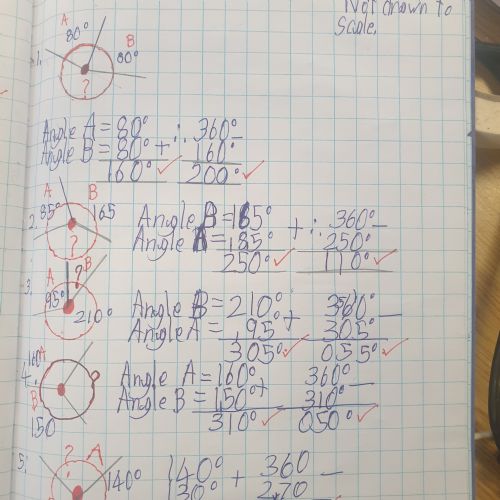 Not drawn to
Scale.
A
80°
B
80°
1.
?
Angle A = 80° + ∴ 360° -
Angle B = 80° 160°
160° ✓ 200° ✓
A B
85° 165
2.
?
Angle B = 165° + ∴ 360° -
Angle A = 85° 250°
250° ✓ 110° ✓
3.
A ? B
95°
210°
Angle B = 210° + 360° -
Angle A = 95 305°
305° ✓ 055° ✓
160° A
4.
B
150
Angle A = 160° + 360° -
Angle B = 150° 310°
310° ✓ 050° ✓
5.
? A
140°
140° + 360 -
130° 270